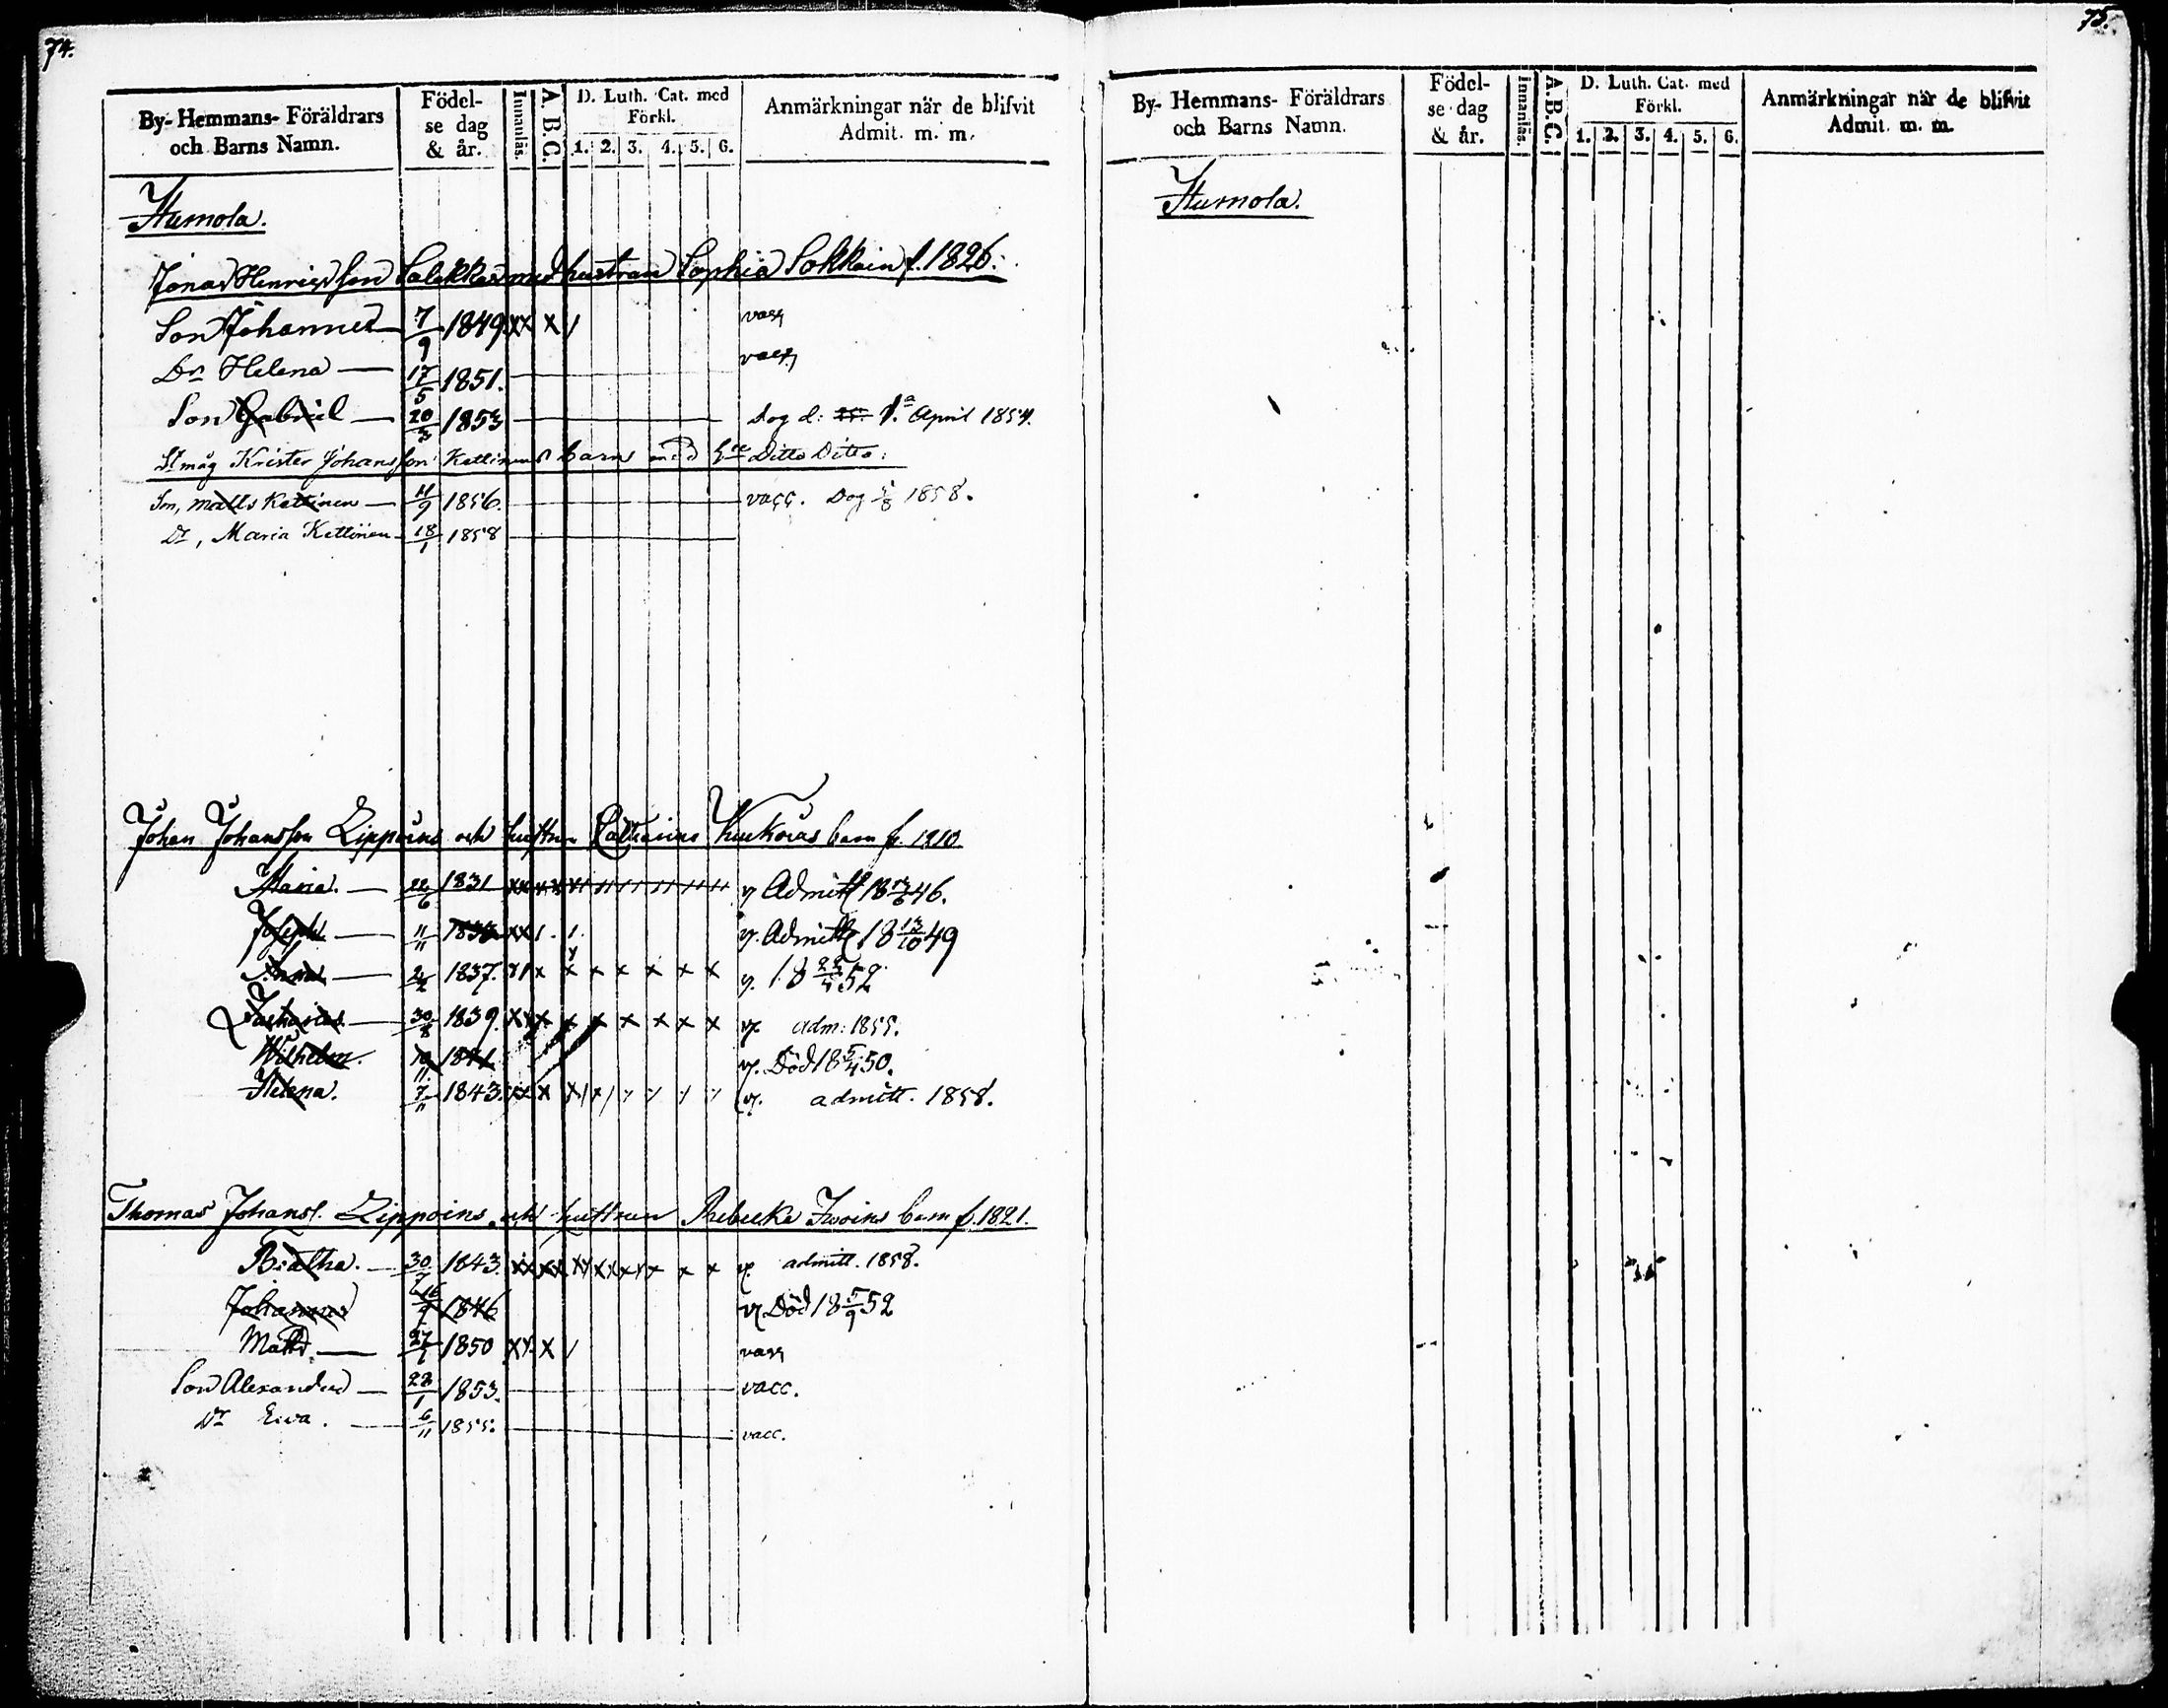 74.
By- Hemmans- Föräldrars och Barns Namn.
Födel- se dag & år.
Innanläs.
A.B.C.
D. Luth. Cat. med Förkl.
1. 2. 3. 4. 5. 6.
Anmärkningar när de blifvit Admit. m. m.
Humola.
Jonas Henricsson med hustrun Sophia f. 1826.
Son Johannes 7/9 1849 xx x / vacc
Dr Helena 17/5 1851. vacc
Son Gabriel 20/3 1853 Dog d: 1.a April 1854.
Krister Johansson Kettinens barn med Ditto Ditto:
Son, Matts Kettinen 11/9 1856. vacc. Dog 5/8 1858.
Dr, Maria Kettinen 18/1 1858
Johan Johansson Lippoins och hustrun Catharina barn f. 1810
Maria. 22/6 1831 v Admitt 18 46.
Joseph 11/11 v. Admitt 18 13/10 49
Anna 2/2 1837. x x x x x x v. 18 52
Zacharias 30/8 1839. xx x x x x x x x v. adm: 1855.
Wilhelm. 10/11 1841 v. Död 18 5/4 50.
Helena. 7/11 1843. xx x v. admitt. 1858.
Thomas Johanss. Lippoins och hustrun Rebecka Iwoins barn f. 1821.
Beatha. 30/7 1843. v. admitt. 1858.
Johannes 1846 v Död 18 5/9 52
Matts. 27/1 1850 xx x / vacc
Son Alexander 22/1 1853. vacc.
Dr Eva. 6/11 1855. vacc.
75.
By- Hemmans- Föräldrars och Barns Namn.
Födel- se dag & år.
Innanläs.
A.B.C.
D. Luth. Cat. med Förkl.
1. 2. 3. 4. 5. 6.
Anmärkningar när de blifvit Admit. m. m.
Humola.